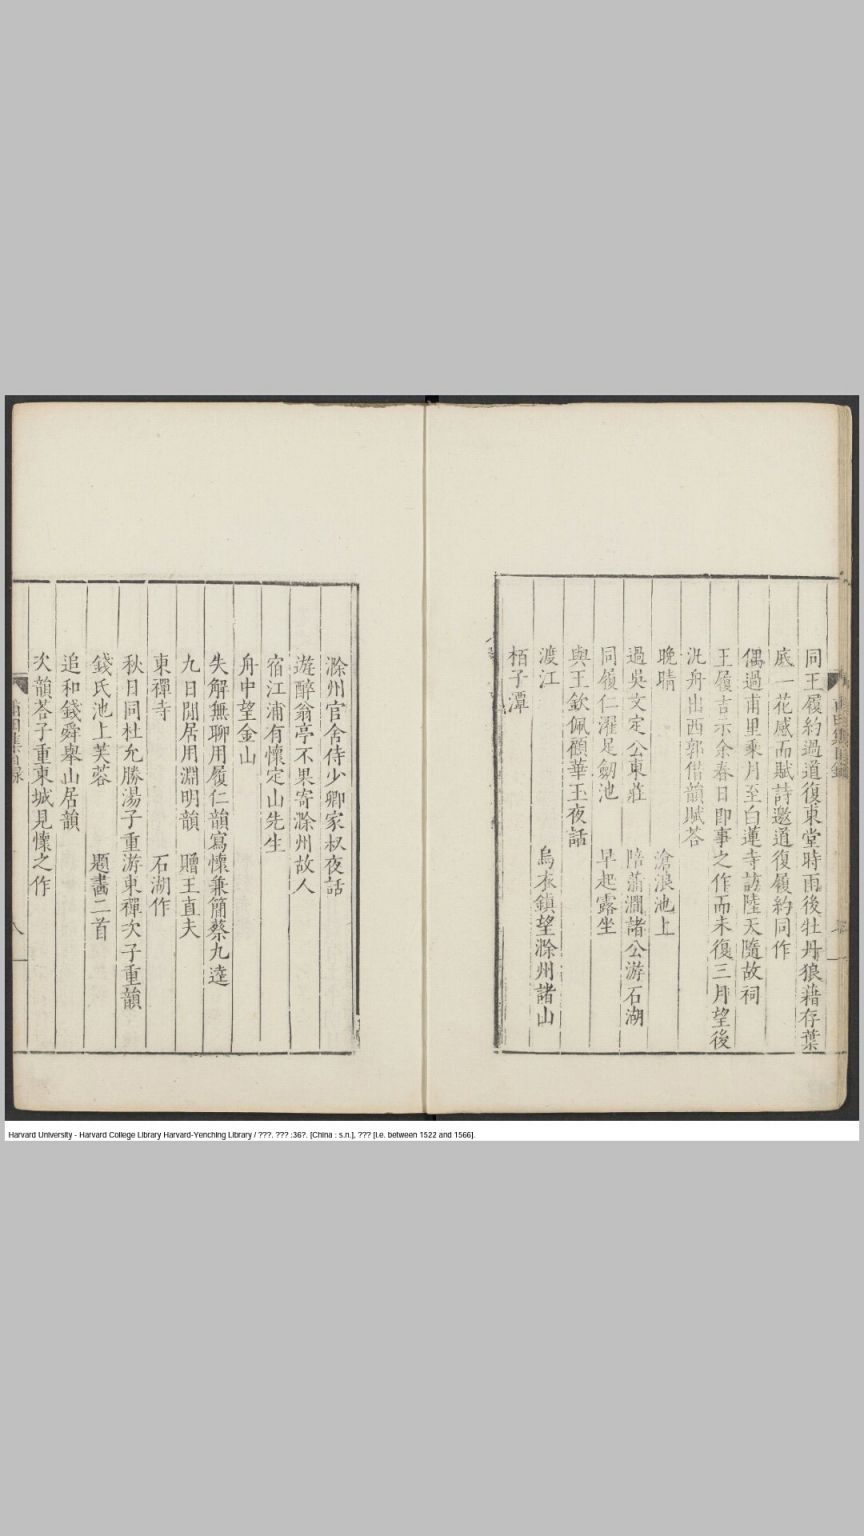 同王履約過道復東堂時雨後牡丹狼藉存葉
底一花感而賦詩邀道復履約同作
偶過甫里乘月至白蓮寺訪陸天隨故祠
王履吉示余春日即事之作而未復三月望後
汎舟出西郭借韻賦荅
晚晴 滄浪池上
過吳文定公東莊 陪蕭澗諸公游石湖
同履仁濯足劒池 早起露坐
與王欽佩顧華玉夜話
渡江 烏衣鎮望滁州諸山
栢子潭
滁州官舍侍少卿家叔夜話
遊醉翁亭不果寄滁州故人
宿江浦有懷定山先生
舟中望金山
失解無聊用履仁韻寫懷兼簡蔡九逵
九日閒居用淵明韻 贈王直夫
東禪寺 石湖作
秋日同杜允勝湯子重游東禪次子重韻
錢氏池上芙蓉 題畵二首
追和錢舜舉山居韻
次韻荅子重東城見懷之作
八
Harvard University - Harvard College Library Harvard-Yenching Library / ???. ??? :36?. [China : s.n.], ??? [i.e. between 1522 and 1566].